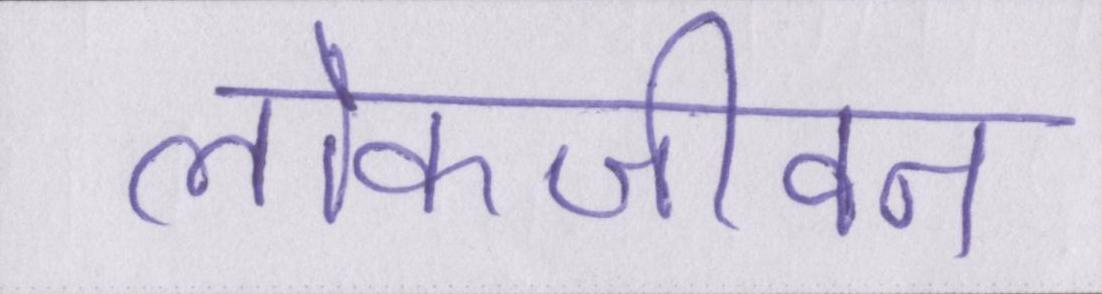 लोकजीवन